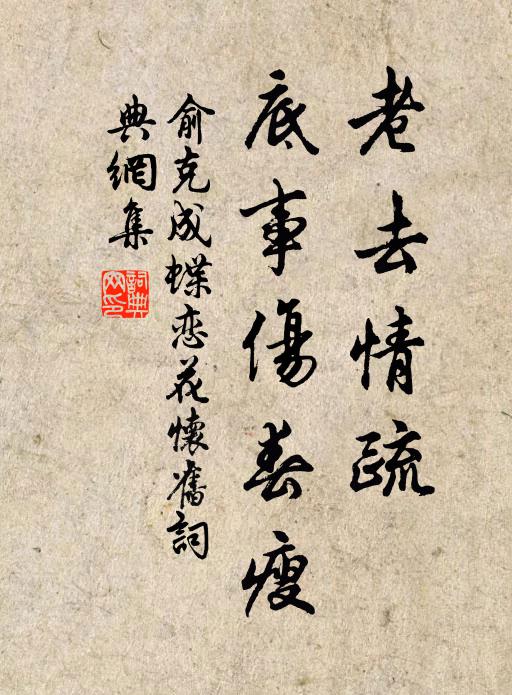 老去情疏
底事傷春瘦
俞克成蝶恋花懷舊詞
典網集
詞典
网印